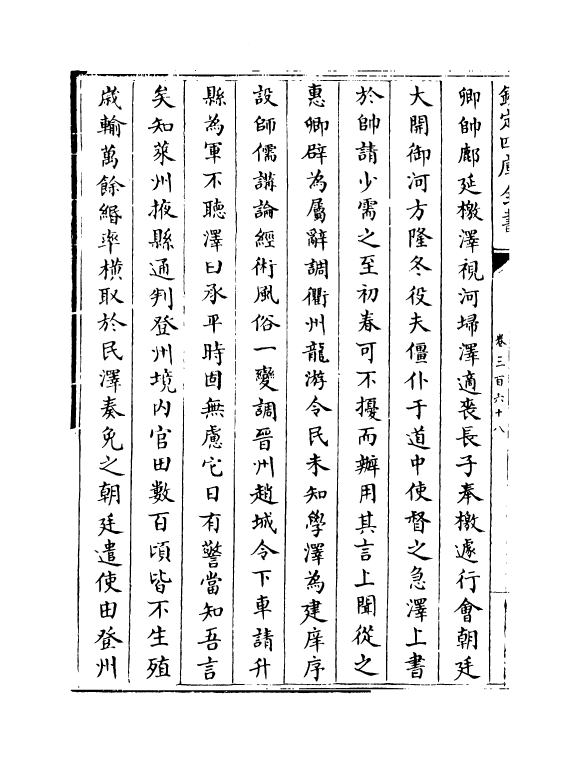 欽定四庫全書
卷三百六十八
卿帥鄜延檄澤視河埽澤適喪長子奉檄遽行會朝廷
大開御河方隆冬役夫僵仆于道中使督之急澤上書
於帥請少需之至初春可不擾而辦用其言上聞從之
惠卿辟為屬辭調衢州龍游令民未知學澤為建庠序
設師儒講論經術風俗一變調晉州趙城令下車請升
縣為軍不聽澤曰承平時固無慮它日有警當知吾言
矣知萊州掖縣通判登州境内官田數百頃皆不生殖
歳輸萬餘緡率横取於民澤奏免之朝廷遣使由登州